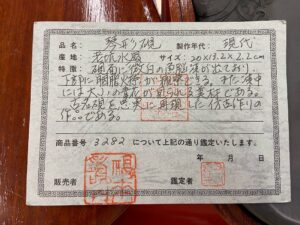 品名: 琴形硯 製作年代: 現代
産地: 老坑水巌 サイズ: 20×13.2×2.2cm
特徴: 硯面に微白の魚脳凍が出ており、
下部に胭脂火捺が観察できる。また凍中
には大小の青花が見られる美材である。
古名硯を忠実に再現した仿古作りの
作品である。
商品番号 3282 について上記の通り鑑定いたします。
年 月 日
販売者 鑑定者